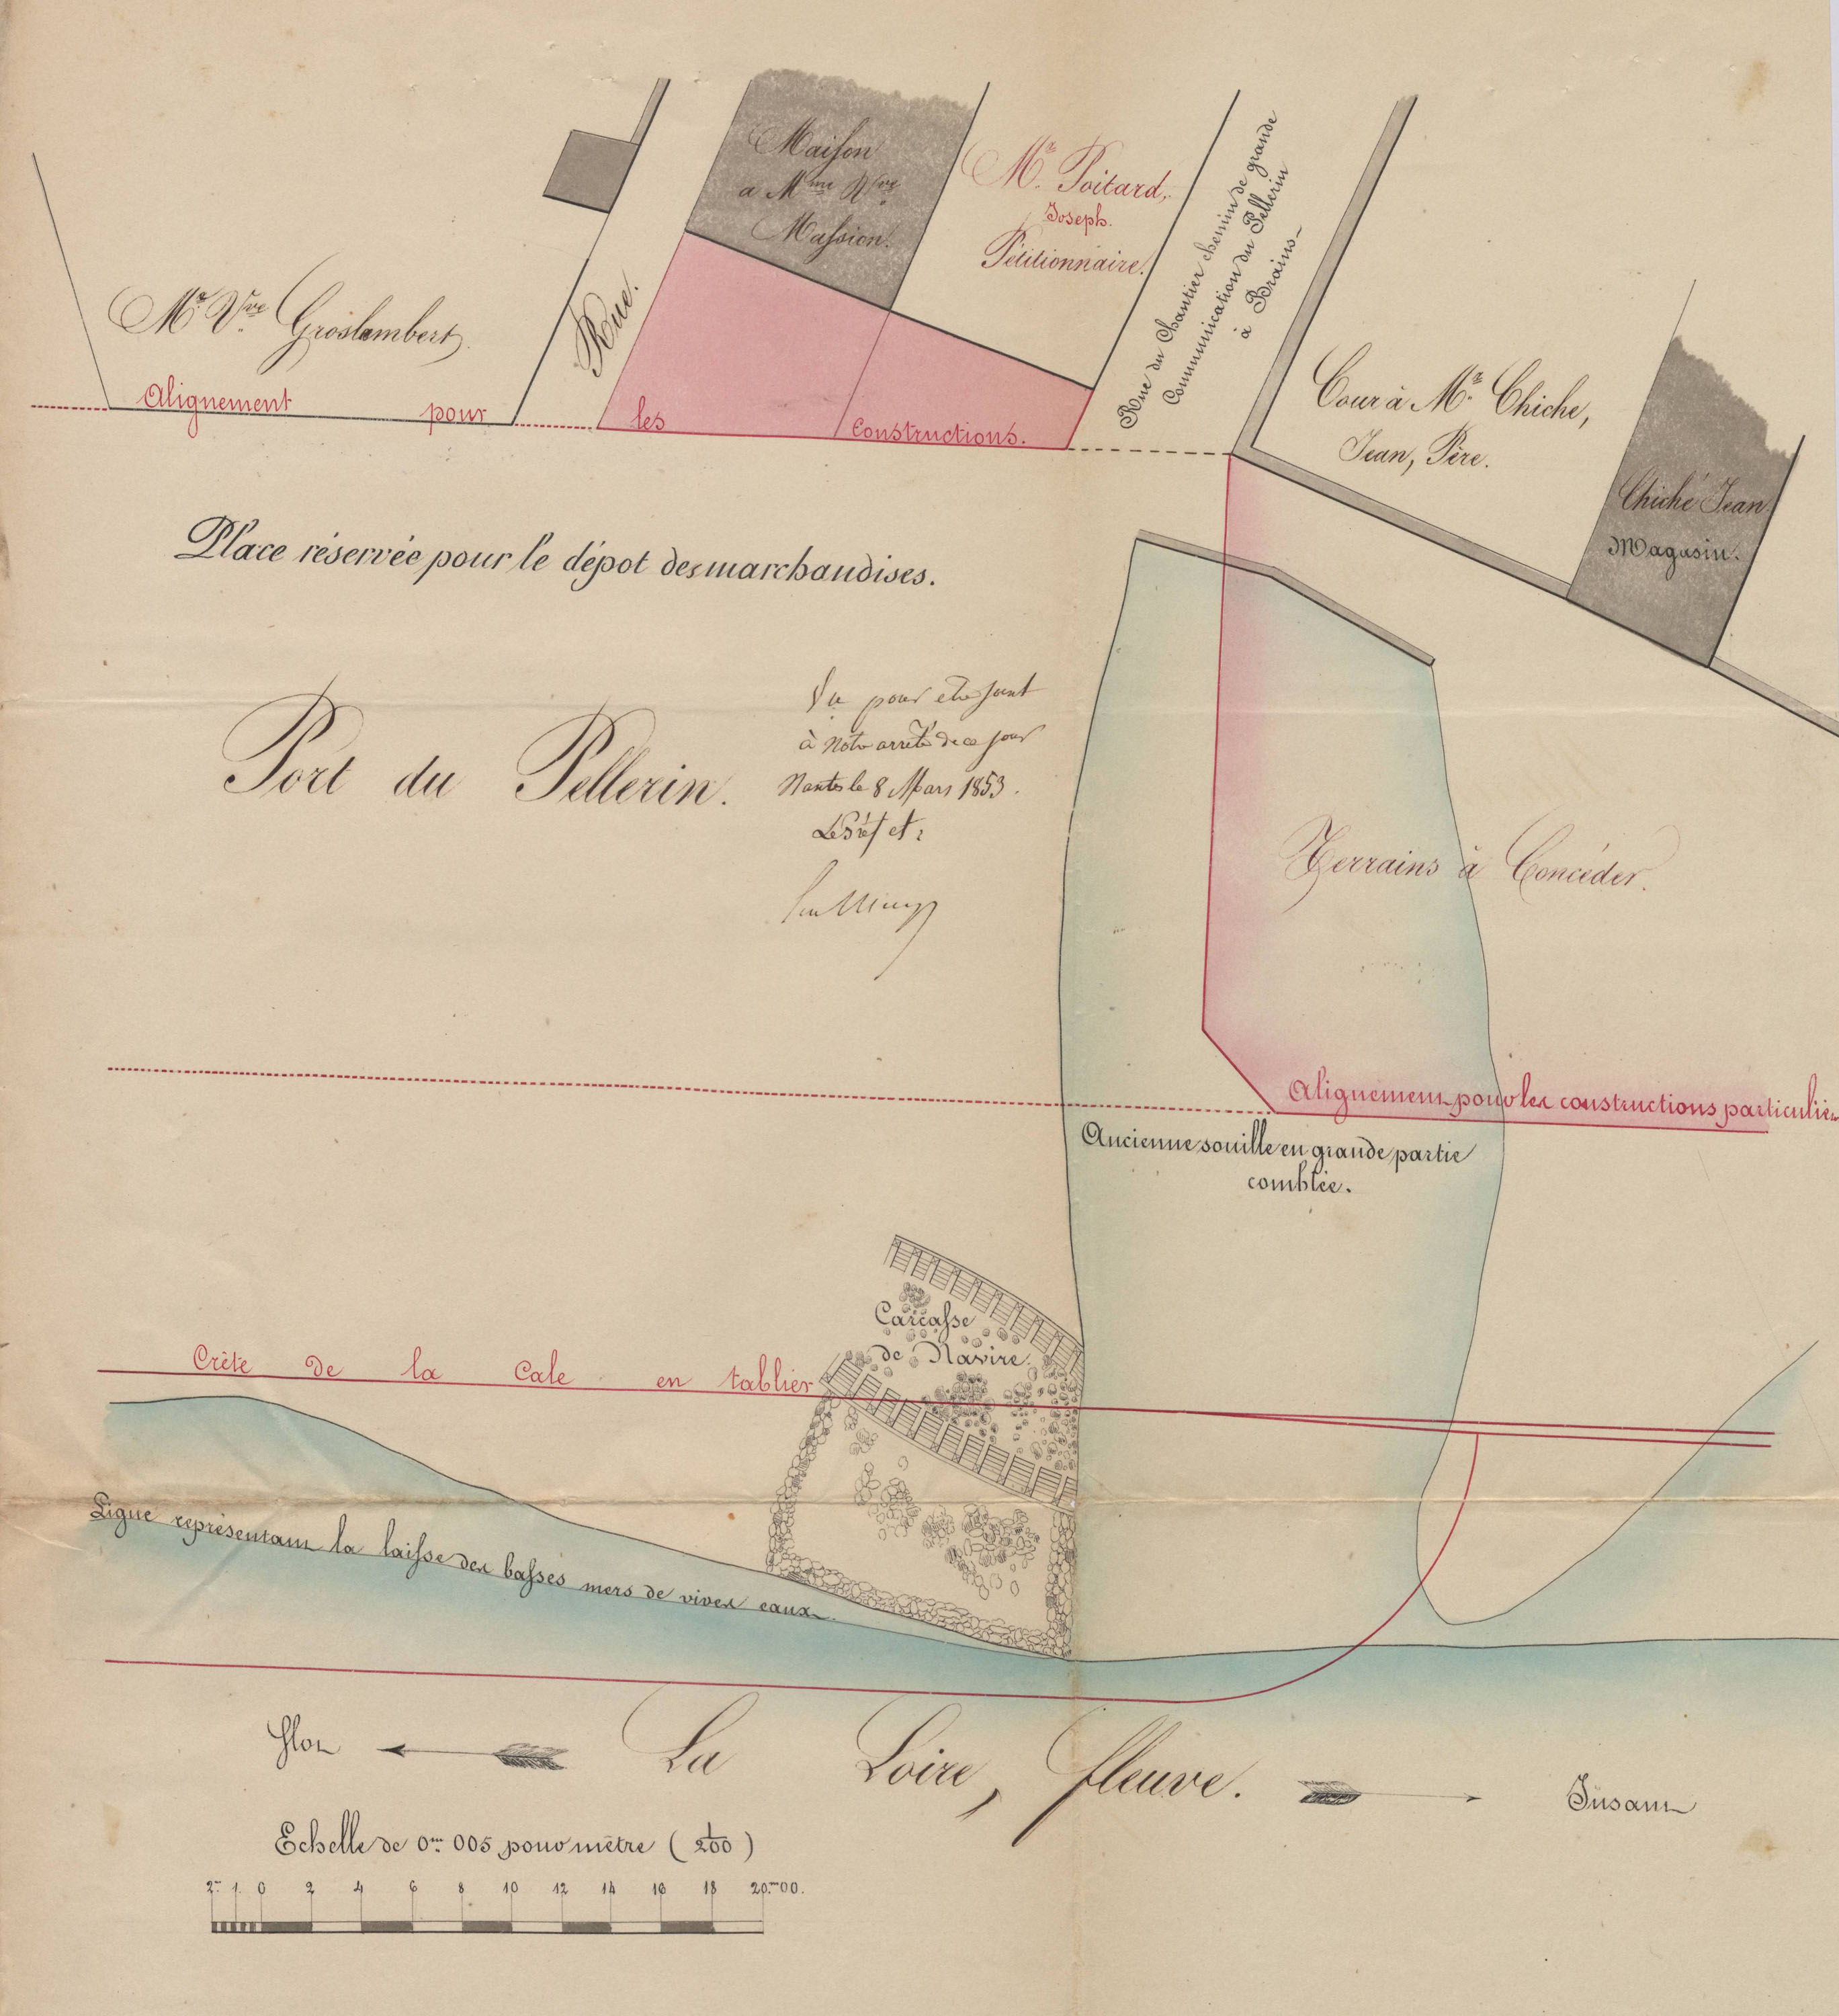 Maison
a Mme Vve
Massion.
Mr. Poitard,
Joseph.
Pétitionnaire.
Rue du Chantier chemin de grande
Communication du Pellerin
à Brains-
Mr. Vve Groslambert.
Rue.
Alignement pour les Constructions.
Cour à Mr. Chiche,
Jean, Père.
Chiché Jean
Magasin.
Place réservée pour le dépot des marchandises.
Port du Pellerin.
Vu pour etre joint
à notre arrêté de ce jour
Nantes le 8 Mars 1853.
Le Préfet:
Terrains à Concéder.
Alignement pour les constructions particuliè
Ancienne souille en grande partie
comblée.
Carcasse
de Navire.
Crète de la Cale en tablier
Ligne représentant la laisse des basses mers de vives eaux
Flot
La Loire, fleuve.
Jusant
Echelle de 0m. 005 pour mètre (1/200)
2m. 1. 0 2 4 6 8 10 12 14 16 18 20.m00.